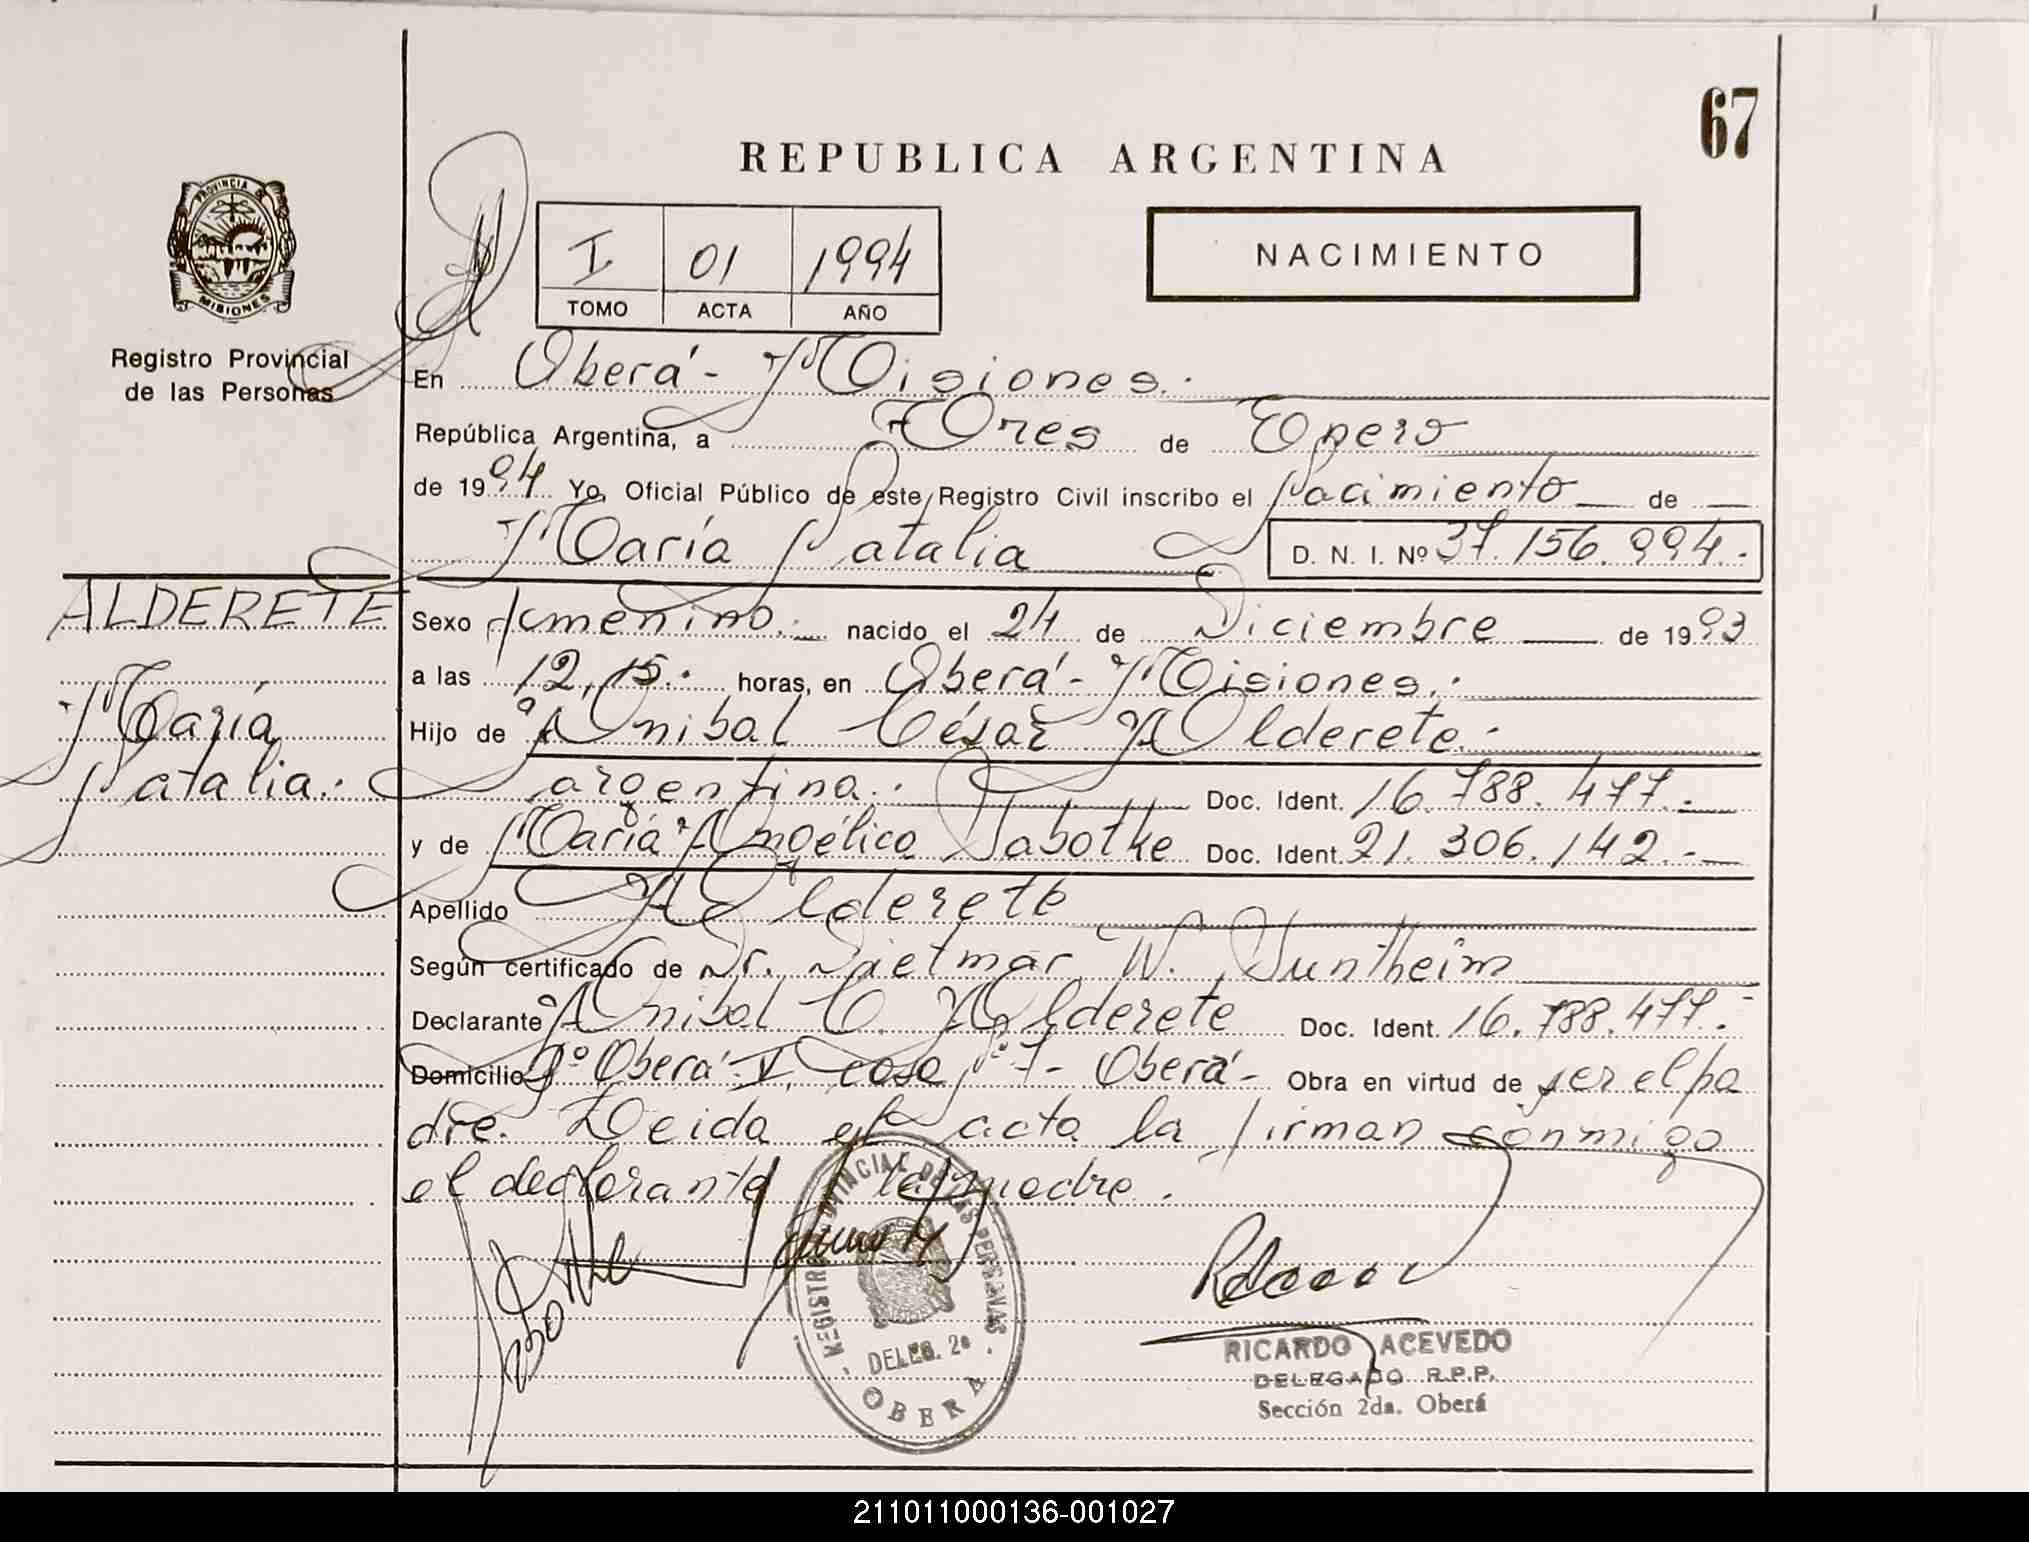 67
REPUBLICA ARGENTINA
PROVINCIA DE
MISIONES
Registro Provincial
de las Personas
I 01 1994
TOMO ACTA AÑO
NACIMIENTO
En Oberá - Misiones.
República Argentina, a Tres de Enero
de 1994 Yo, Oficial Público de este Registro Civil inscribo el Nacimiento de
María Natalia D. N. I. Nº 37.156.994.-
ALDERETE
María
Natalia.
Sexo femenino. nacido el 24 de Diciembre de 1993
a las 12,15. horas, en Oberá - Misiones.
Hijo de Anibal César Alderete.
argentina. Doc. Ident. 16.788.477.-
y de María Angélica Sabotke Doc. Ident. 21.306.142.-
Apellido Alderete
Según certificado de Dr. Dietmar W. Suntheim
Declarante Anibal C. Alderete Doc. Ident. 16.788.477.-
Domicilio Bº Oberá V, casa Nº 7 - Oberá - Obra en virtud de ser el pa
dre. Leida el acta la firman conmigo
el declarante y la madre.
REGISTRO PROVINCIAL DE LAS PERSONAS
DELEG. 2a
OBERA
RICARDO ACEVEDO
DELEGADO R.P.P.
Sección 2da. Oberá
211011000136-001027